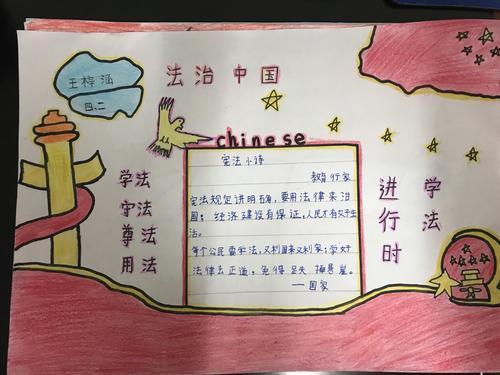 王梓涵
四.二
法治中国
chinese
宪法小诗
教育行家
宪法规定讲明确，要用法律来治
国；经济建设有保证，人民才有好生
活。
每个公民需学法，又利国来又利家；学好
法律去正道，免得足失悬崖。
——国家
学法
守法
尊法
用法
学法
进行时